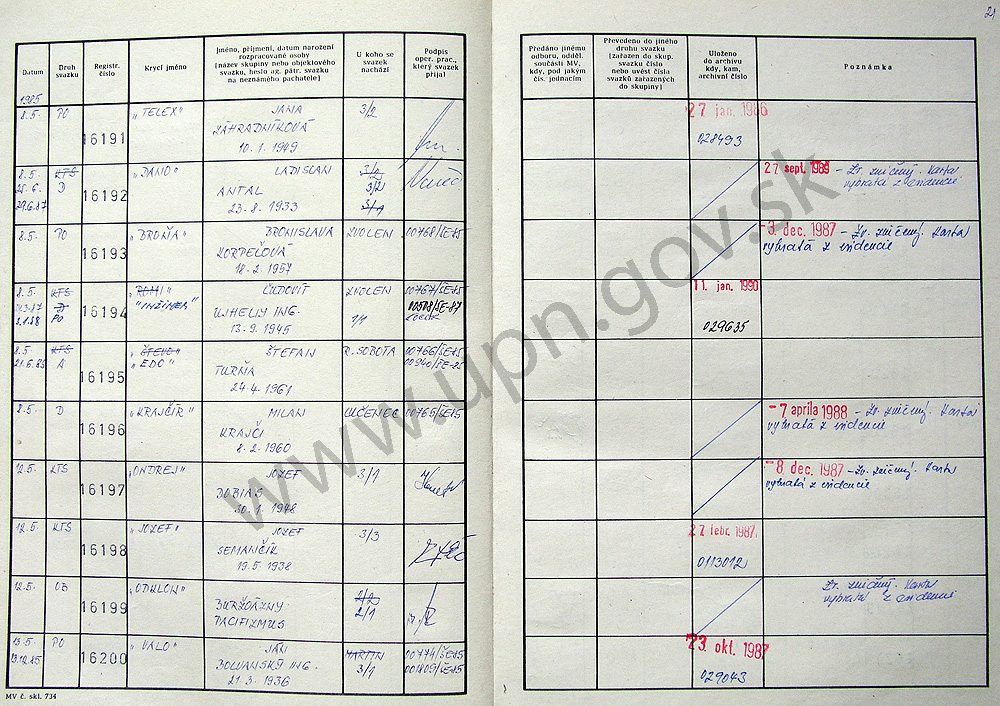 21
Datum
Druh svazku
Registr. číslo
Krycí jméno
Jméno, příjmení, datum narození
rozpracované osoby
(název skupiny nebo objektového
svazku, heslo ag. pátr. svazku
na neznámého pachatele)
U koho se
svazek
nachází
Podpis
oper. prac.,
který svazek
přijal
Předáno jinému
odboru, odděl.
součásti MV,
kdy, pod jakým
čís. jednacím
Převedeno do jiného
druhu svazku
(zařazen do skup.
svazku číslo
nebo uvést čísla
svazků zařazených
do skupiny)
Uloženo
do archivu
kdy, kam,
archivní číslo
Poznámka
1985
8.5. PO 16191 „TELEX" JANA 3/2
ZÁHRADNÍKOVÁ
10.1.1949
27 jan. 1986
028493
8.5. KTS 16192 „DANO" LADISLAV 3/2
D ANTAL 3/2
29.6.87 23.8.1933 3/1
27 sept. 1989 - Zv. zničený. Karta
vybratá z evidencie
8.5. PO 16193 „BROŇA" BRONISLAVA ZVOLEN 00768/ŠE-85
KORPEĽOVÁ
18.2.1957
-3. dec. 1987 - Zv. zničený. Karta
vybratá z evidencie
8.5. KTS 16194 „ROMI" ĽUDOVÍT ZVOLEN 00767/ŠE-85
D "INŽINIER" UJHELIY ING. 00508/ŠE-87
PO 13.9.1945 1/1
11. jan. 1990
029635
8.5. KTS 16195 „ŠTEVO" ŠTEFAN R. SOBOTA 00766/ŠE-85
21.6.85 A „EDO" TURŇA 00940/ŠE-85
24.4.1961
8.5. D 16196 „KRAJČÍR" MILAN LUČENEC 00765/ŠE-85
KRAJČI
8.2.1960
-7 apríla 1988 - Zv. zničený. Karta
vybratá z evidencie
12.5. KTS 16197 „ONDREJ" JOZEF 3/1
DOBIAS
30.1.1948
-8 dec. 1987 - Zv. zničený. Karta
vybratá z evidencie
12.5. KTS 16198 „JOZEF" JOZEF 3/3
SEMANČÍK
19.5.1938
27 febr. 1987
0113012
12.5. OB 16199 „ODILON" BURŽOÁZNY 2/2
PACIFIZMUS 2/1
Zv. zničený. Karta
vybratá z evidencie
13.5. PO 16200 „VALO" JÁN MARTIN 00774/ŠE-85
13.12.85 BOLVANSKÝ ING. 3/1 001809/ŠE-85
21.3.1936
23. okt. 1987
029043
MV č. skl. 734
www.upn.gov.sk